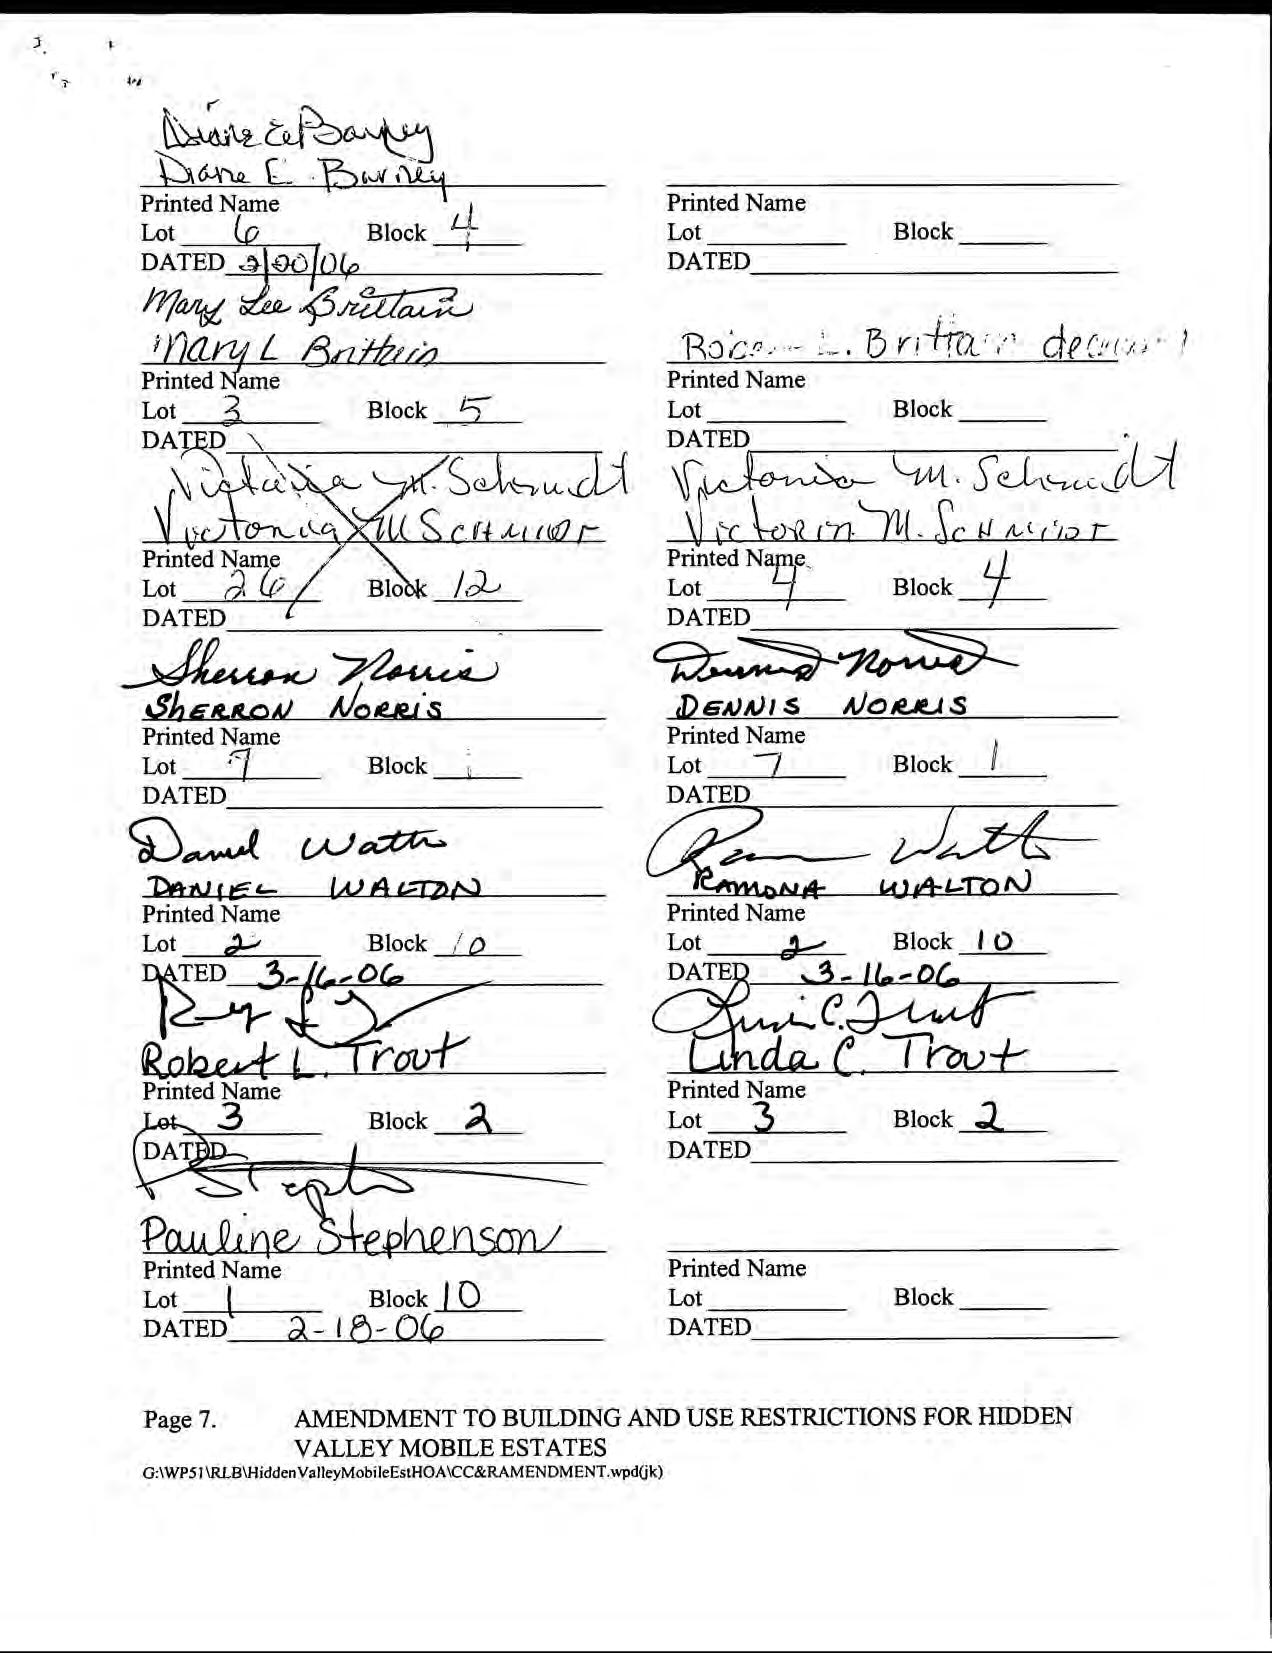 Diane E Barney
Diane E. Burney
Printed Name Printed Name
Lot 6 Block 4 Lot Block
DATED /06 DATED
Mary Lee Brittain
Mary L Brittain L. Brittain
Printed Name Printed Name
Lot 3 Block 5 Lot Block
DATED DATED
Victoria M. Schmidt Victoria M. Schmidt
Victoria M Schmidt Victoria M. Schmidt
Printed Name Printed Name
Lot 26 Block 12 Lot 4 Block 4
DATED DATED
Sherron Norris Dennis Norris
SHERRON NORRIS DENNIS NORRIS
Printed Name Printed Name
Lot 7 Block 1 Lot 7 Block 1
DATED DATED
Daniel Walton Walton
DANIEL WALTON RAMONA WALTON
Printed Name Printed Name
Lot 2 Block 10 Lot 2 Block 10
DATED 3-16-06 DATED 3-16-06
Linda C. Trout
Robert L. Trout Linda C. Trout
Printed Name Printed Name
Lot 3 Block 2 Lot 3 Block 2
DATED DATED
P Steph
Pauline Stephenson
Printed Name Printed Name
Lot 1 Block 10 Lot Block
DATED 2-18-06 DATED
Page 7. AMENDMENT TO BUILDING AND USE RESTRICTIONS FOR HIDDEN
VALLEY MOBILE ESTATES
G:\WP51\RLB\HiddenValleyMobileEstHOA\CC&RAMENDMENT.wpd(jk)